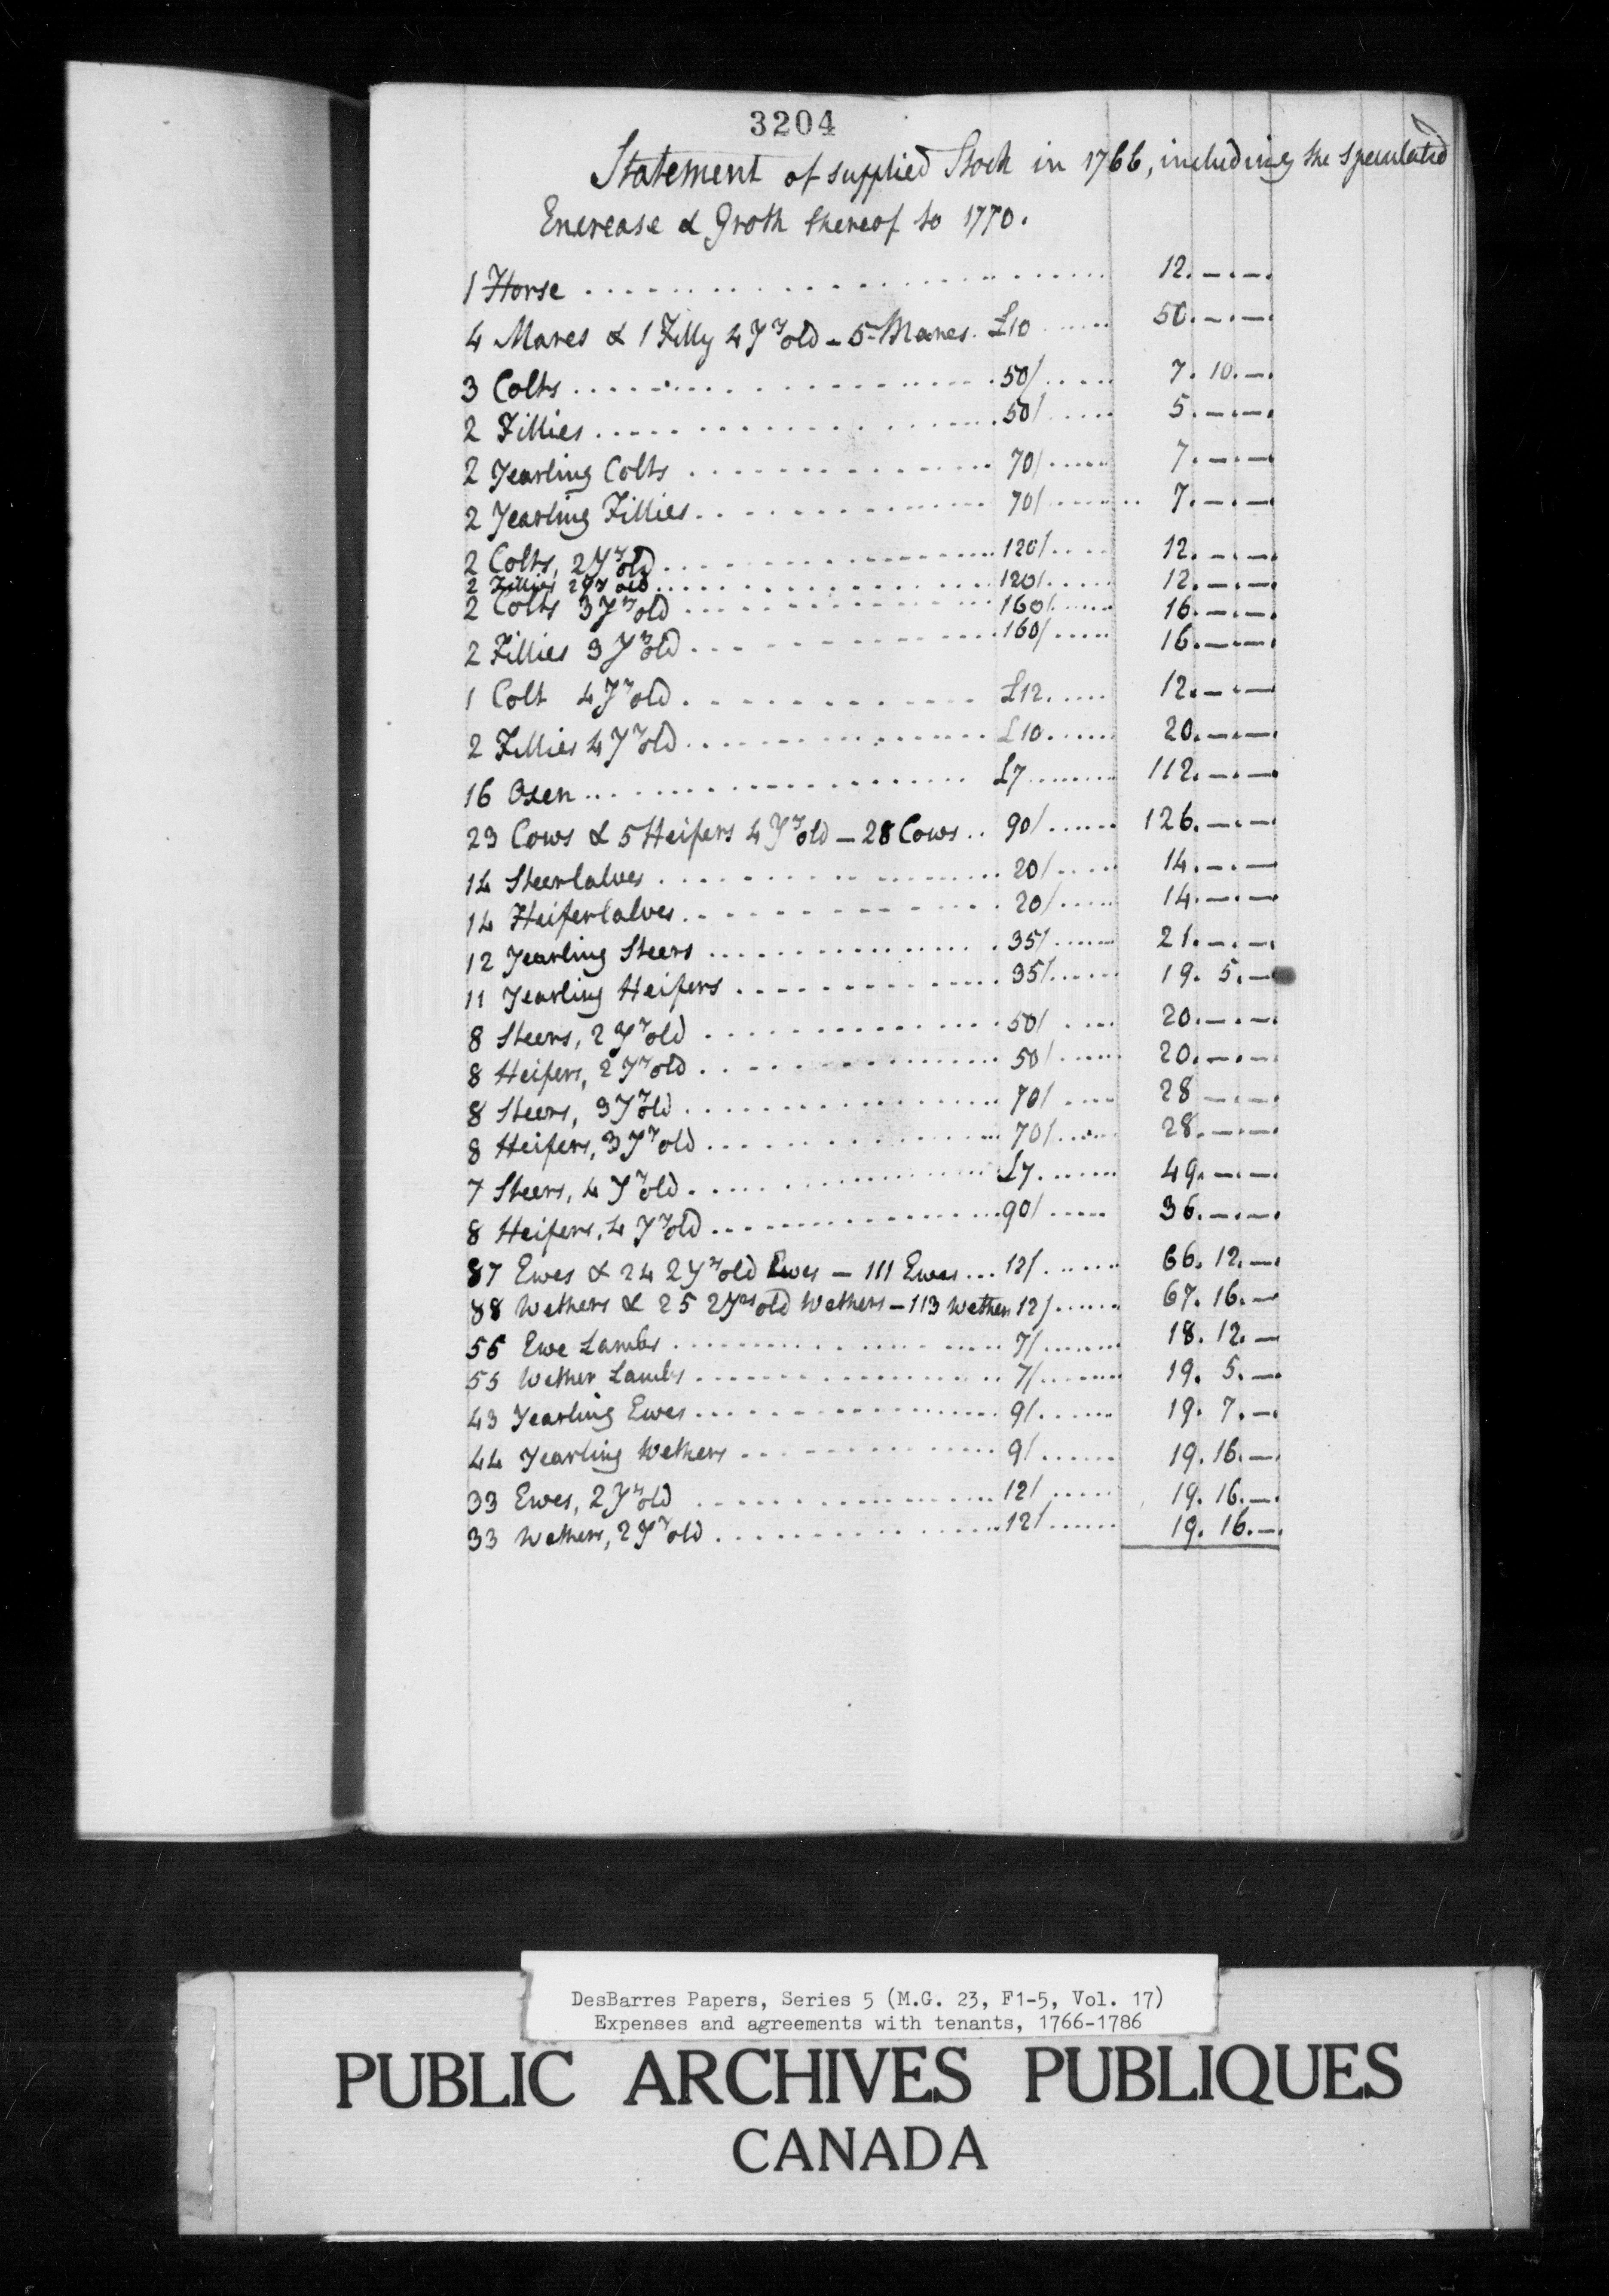 3204
Statement of supplied Stock in 1766, including the speculated
Encrease & Groth thereof to 1770.
1 Horse . . . . . . 12. — . —.
4 Mares & 1 Filly 4 Yr old — 5 Mares. £10 . . . . . . 50. — . —
3 Colts . . . . . . 50/ . . . . . . 7. 10. —.
2 Fillies . . . . . . 50/ . . . . . . 5. — . —.
2 Yearling Colts . . . . . . 70/ . . . . . . 7. — . —
2 Yearling Fillies . . . . . . 70/ . . . . . . 7. — . —.
2 Colts, 2 Yr old . . . . . . 120/ . . . . . . 12. — . —.
2 Fillies 2 Yr old . . . . . . 120/ . . . . . . 12. — . —.
2 Colts 3 Yr old . . . . . . 160/ . . . . . . 16. — . —.
2 Fillies 3 Yr old . . . . . . 160/ . . . . . . 16. — . —.
1 Colt 4 Yr old . . . . . . £12 . . . . . . 12. — . —
2 Fillies 4 Yr old . . . . . . £10 . . . . . . 20. — . —.
16 Oxen . . . . . . £7 . . . . . . 112. — . —
23 Cows & 5 Heifers 4 Yr old — 28 Cows . . 90/ . . . . . . 126. — . —
14 Steer Calves . . . . . . 20/ . . . . . . 14. — . —
14 Heifer Calves . . . . . . 20/ . . . . . . 14. — . —
12 Yearling Steers . . . . . . 35/ . . . . . . 21. — . —.
11 Yearling Heifers . . . . . . 35/ . . . . . . 19. 5. —
8 Steers, 2 Yr old . . . . . . 50/ . . . . . . 20. — . —.
8 Heifers, 2 Yr old . . . . . . 50/ . . . . . . 20. — . —.
8 Steers, 3 Yr old . . . . . . 70/ . . . . . . 28 — . —.
8 Heifers, 3 Yr old . . . . . . 70/ . . . . . . 28. — . —.
7 Steers, 4 Yr old . . . . . . £7 . . . . . . 49. — . —.
8 Heifers, 4 Yr old . . . . . . 90/ . . . . . . 36. — . —.
87 Ewes & 24 2 Yr old Ewes — 111 Ewes . . . 12/ . . . . . . 66. 12. —.
88 Wethers & 25 2 Yrs old Wethers — 113 Wethers 12/ . . . . . . 67. 16. —
56 Ewe Lambs . . . . . . 7/ . . . . . . 18. 12. —
55 Wether Lambs . . . . . . 7/ . . . . . . 19. 5. —.
43 Yearling Ewes . . . . . . 9/ . . . . . . 19. 7. —.
44 Yearling Wethers . . . . . . 9/ . . . . . . 19. 16. —.
33 Ewes, 2 Yr old . . . . . . 12/ . . . . . . 19. 16. —.
33 Wethers, 2 Yr old . . . . . . 12/ . . . . . . 19. 16. —.
DesBarres Papers, Series 5 (M.G. 23, F1-5, Vol. 17)
Expenses and agreements with tenants, 1766-1786
PUBLIC ARCHIVES PUBLIQUES
CANADA